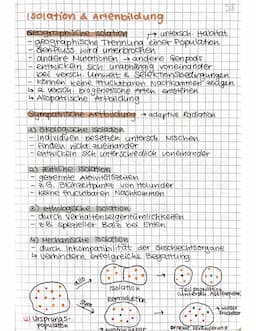 Isolation & Artenbildung
Geographische Isolation → untersch. Habitat
- geographische Trennung einer Population
- Genfluss wird unterbrochen
- andere Mutationen → andere Genpools
- entwickeln sich unabhängig voneinander
bei versch. Umwelt & Selektionsbedingungen
- können keine fruchtbaren Nachkommen zeugen
↳ 2 versch. biogenetische Arten entstehen
- Allopatrische Artbildung
Sympatrische Artbildung → adaptive Radiation
1) Ökologische Isolation
- Individuen besetzen untersch. Nischen
- finden nicht zueinander
- entwickeln sich unterschiedlich voneinander
2) zeitliche Isolation
- getrennte Aktivitätszeiten
- z.B. Blühzeitpunkte von Holunder
- keine fruchtbaren Nachkommen
3) ethologische Isolation
- durch Verhaltenseigentümlichkeiten
- z.B. spezieller Balz bei Enten
4) Mechanische Isolation
- durch Inkompatibilität der Geschlechtsorgane
↳ verhindern erfolgreiche Begattung
allo
Isolation
Teilpopulation
sym
Reproduktion
Ursprungs-
population